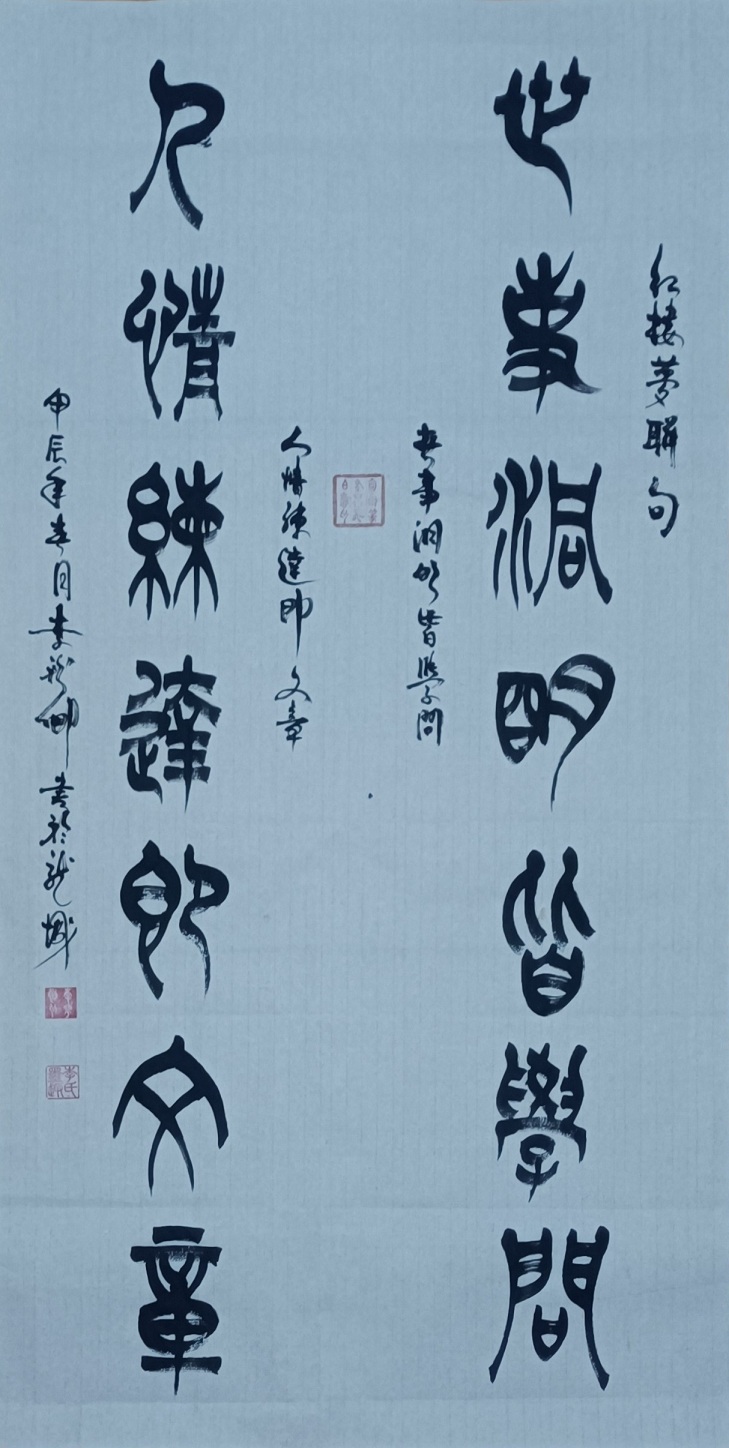 红楼梦联句
世事洞明皆學問
世事洞明皆學問
人情練達即文章
人情練達即文章
甲辰年春月李 卿書於龍城
李氏